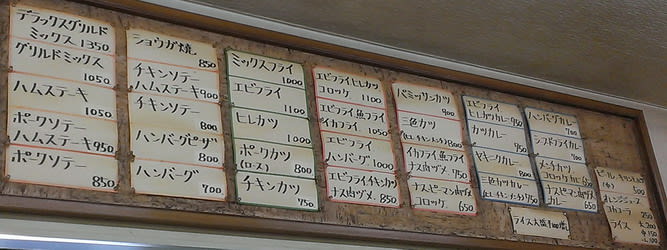 デラックスグリルド
ミックス 1350
グリルドミックス
1050
ハムステーキ
1050
ポークソテー
ハムステーキ 950
ポークソテー
850
ショウガ焼
850
チキンソテー
ハムステーキ 900
チキンソテー
800
ハンバーグピザ
800
ハンバーグ
700
ミックスフライ
1000
エビフライ
1100
ヒレカツ
1000
ポークカツ
(ロース) 800
チキンカツ
750
エビフライヒレカツ
コロッケ 1100
エビフライ魚フライ
イカフライ 1050
エビフライ
ハンバーグ 1000
エビフライチキンカツ
ナス肉ヅメ 850
パミィリンカツ
900
三色カツ
イカフライ魚フライ
ナス肉ヅメ 750
ナスピーマン肉ヅメ
コロッケ 650
エビフライ
ヒレカツカレー 950
カツカレー
850
ヤキニクカレー
800
三色カツカレー
ハンバーグカレー
700
シーフドフライカレー
700
メンチカツ
コロッケカレー 650
ナスピーマン肉ヅメ
カレー 650
ライス大盛 100増し
500
オレンジジュース
コカコーラ
250
ライス 大 200